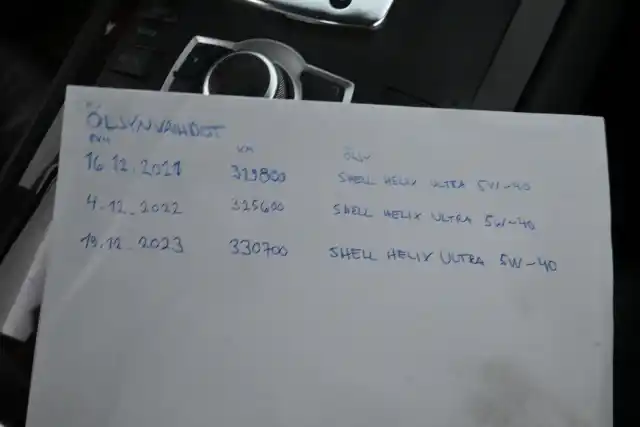 ÖLJYNVAIHDOT
PVM KM ÖLJY
16.12.2021 319800 SHELL HELIX ULTRA 5W-40
4.12.2022 325600 SHELL HELIX ULTRA 5W-40
19.12.2023 330700 SHELL HELIX ULTRA 5W-40